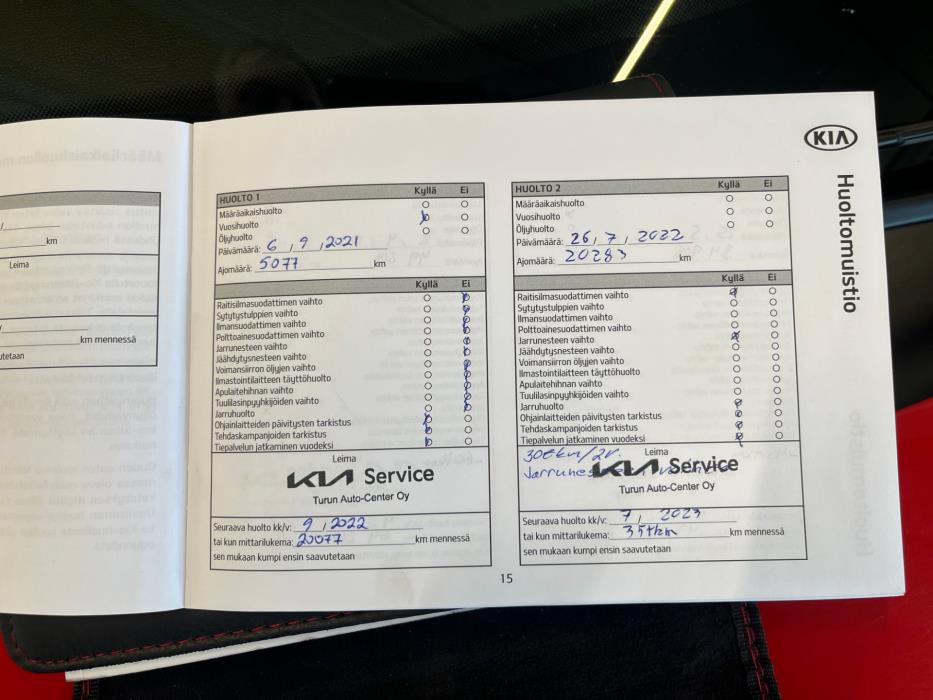 KIA
Huoltomuistio
km
Leima
km mennessä
utetaan
HUOLTO 1 Kyllä Ei
Määräaikaishuolto
Vuosihuolto
Öljyhuolto
Päivämäärä: 6, 9, 2021
Ajomäärä: 5077 km
Kyllä Ei
Raitisilmasuodattimen vaihto
Sytytystulppien vaihto
Ilmansuodattimen vaihto
Polttoainesuodattimen vaihto
Jarrunesteen vaihto
Jäähdytysnesteen vaihto
Voimansiirron öljyjen vaihto
Ilmastointilaitteen täyttöhuolto
Apulaitehihnan vaihto
Tuulilasinpyyhkijöiden vaihto
Jarruhuolto
Ohjainlaitteiden päivitysten tarkistus
Tehdaskampanjoiden tarkistus
Tiepalvelun jatkaminen vuodeksi
Leima
KIA Service
Turun Auto-Center Oy
Seuraava huolto kk/v: 9, 2022
tai kun mittarilukema: 20077 km mennessä
sen mukaan kumpi ensin saavutetaan
HUOLTO 2 Kyllä Ei
Määräaikaishuolto
Vuosihuolto
Öljyhuolto
Päivämäärä: 26, 7, 2022
Ajomäärä: 20283 km
Kyllä Ei
Raitisilmasuodattimen vaihto
Sytytystulppien vaihto
Ilmansuodattimen vaihto
Polttoainesuodattimen vaihto
Jarrunesteen vaihto
Jäähdytysnesteen vaihto
Voimansiirron öljyjen vaihto
Ilmastointilaitteen täyttöhuolto
Apulaitehihnan vaihto
Tuulilasinpyyhkijöiden vaihto
Jarruhuolto
Ohjainlaitteiden päivitysten tarkistus
Tehdaskampanjoiden tarkistus
Tiepalvelun jatkaminen vuodeksi
30tkm/2v. Leima
KIA Service
Turun Auto-Center Oy
Seuraava huolto kk/v: 7, 2023
tai kun mittarilukema: 35tkm km mennessä
sen mukaan kumpi ensin saavutetaan
15